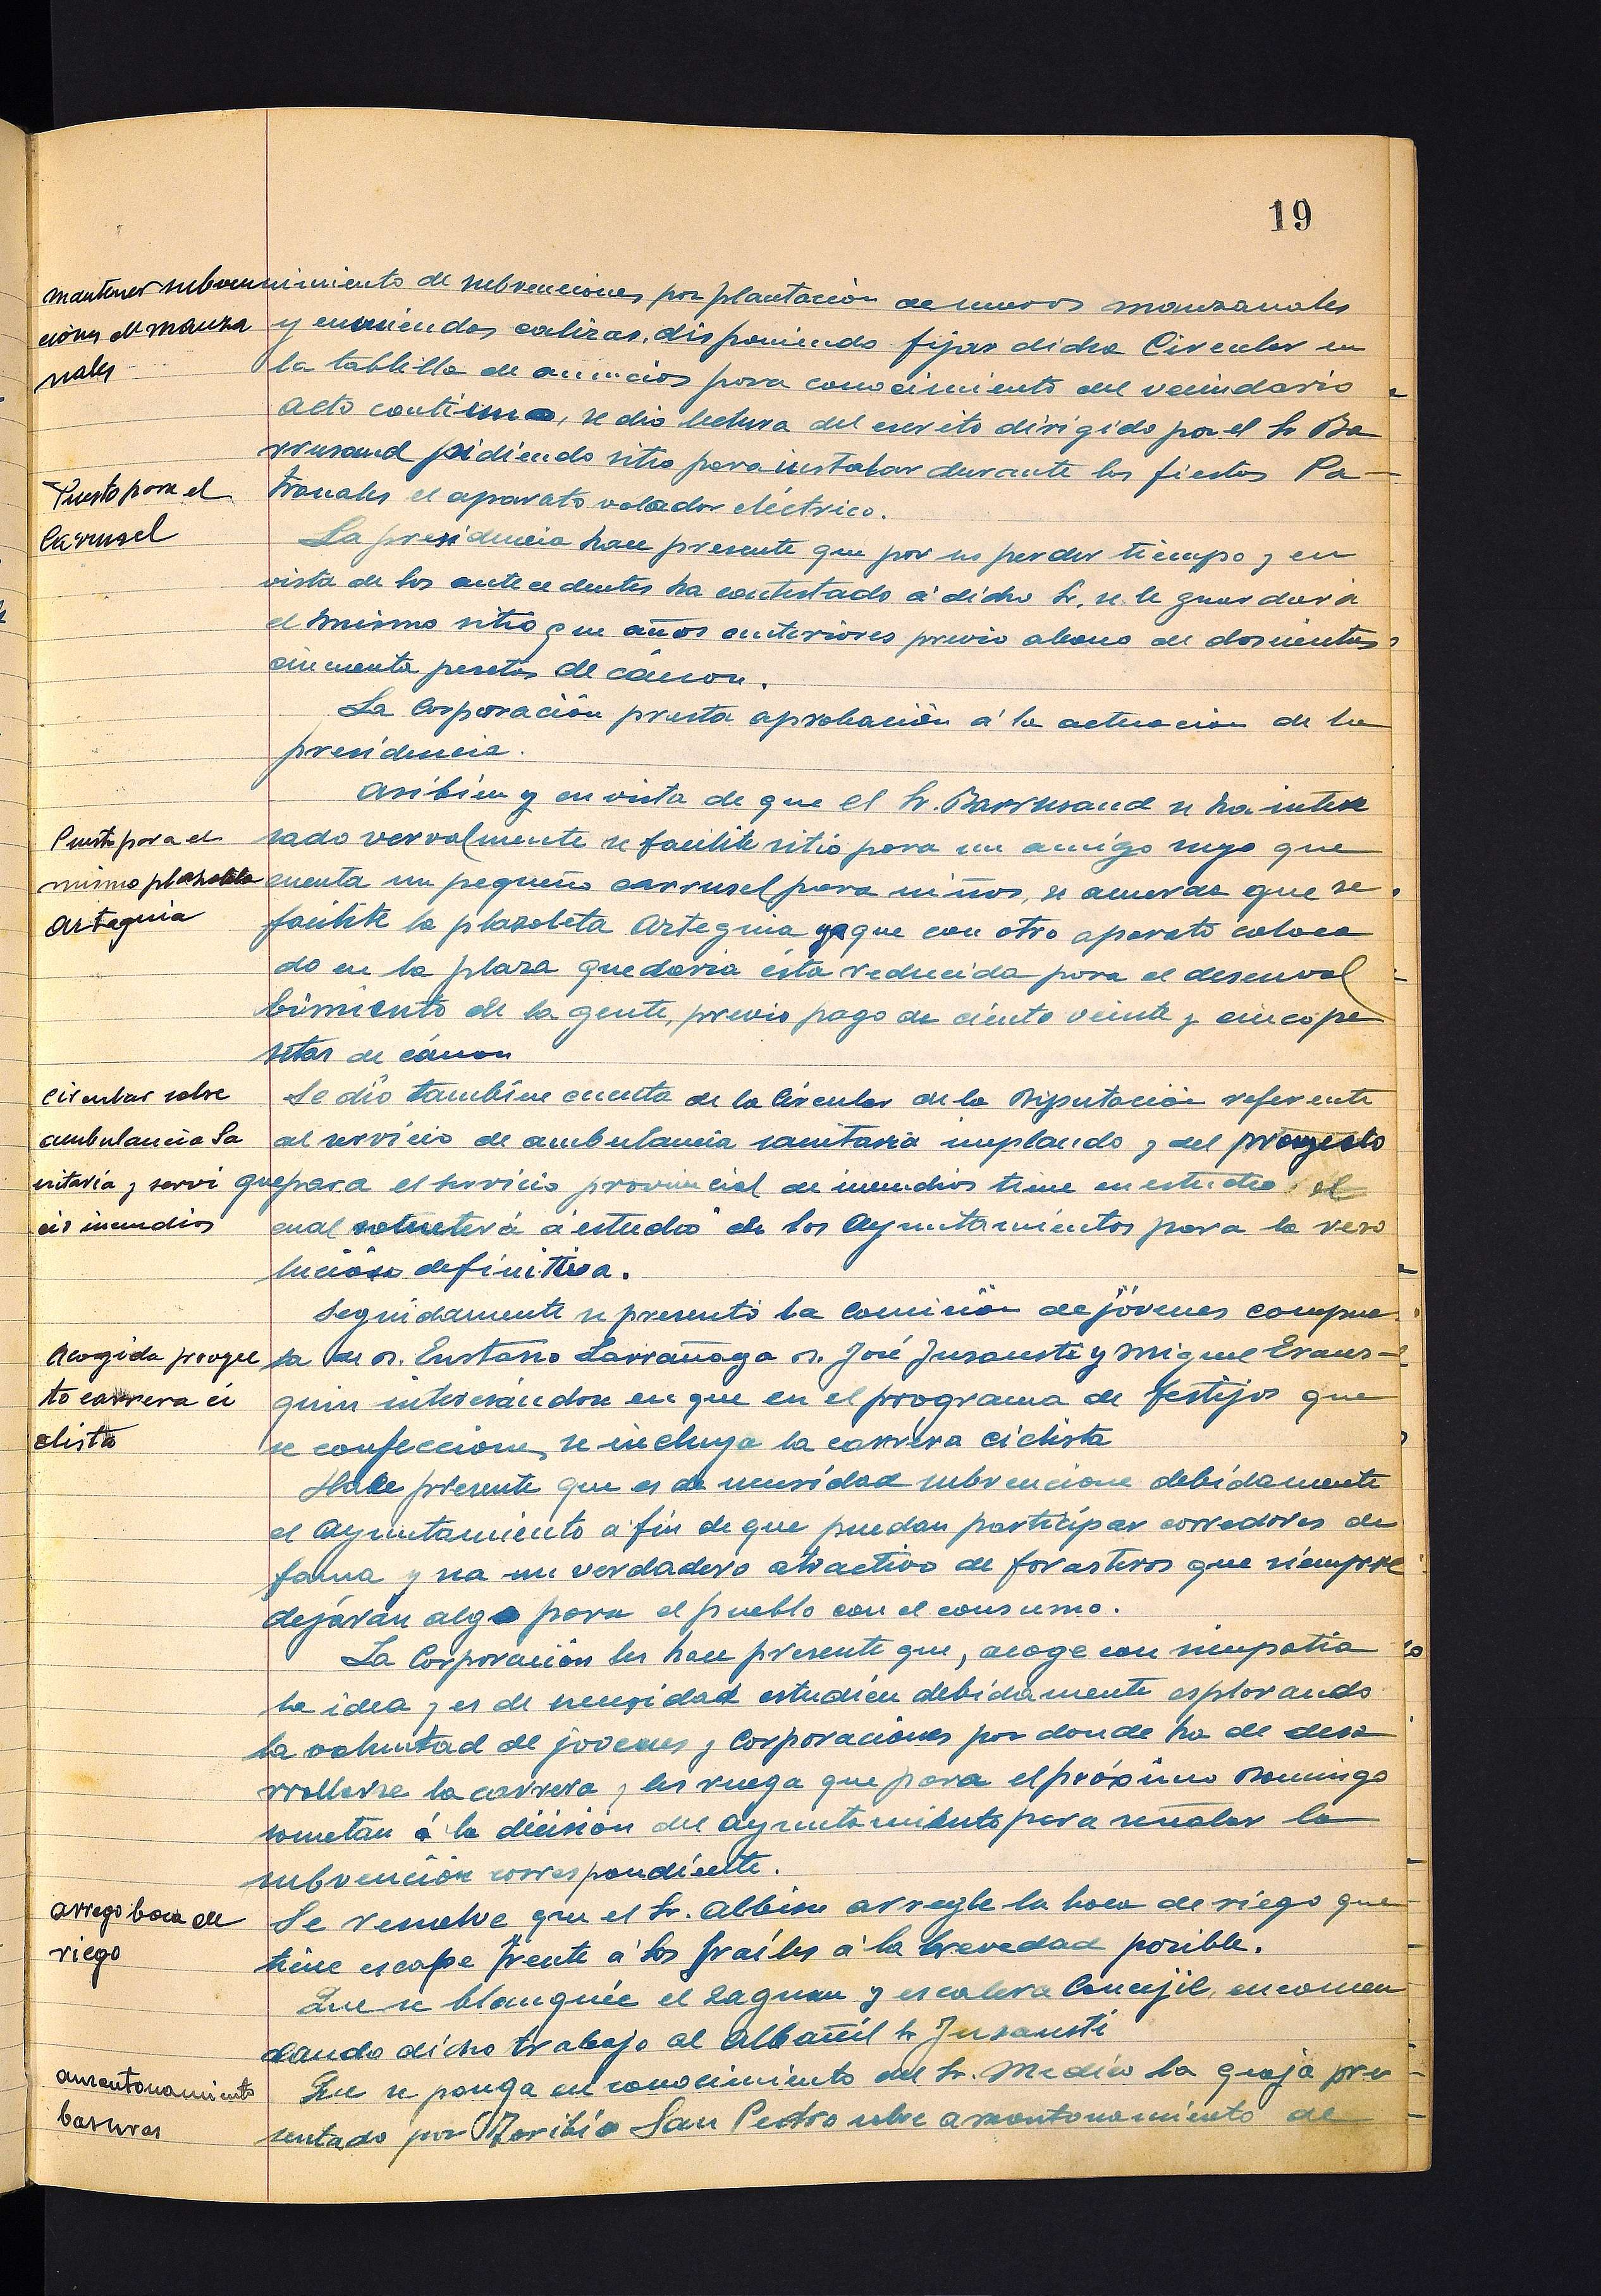 19
mantener subven
cions de manza
nales
nimiento de subvenciones por plantación de nuevos manzanales
y enmiendas calizas, disponiendo fijar dicha Circular en
la tablilla de anuncios para conocimiento del vecindario
Acto continuo, se dio lectura del escrito dirigido por el Sr Ba
rrusand pidiendo sitio para instalar durante las fiestas Pa-
tronales el aparato volador eléctrico.
Puesto para el
Carrusel
La presidencia hace presente que por no perder tiempo y en
vista de los antecedentes ha contestado á dicho Sr. se le guardará
el mismo sitio que años anteriores previo abono de doscientas
cincuenta pesetas de cánon.
La Corporación presta aprobación á la actuación de la
presidencia.
Asibien y en vista de que el Sr. Barrusand se ha intere
sado vervalmente se facilite sitio para un amigo suyo que
cuenta un pequeño carrusel para niños, se acuerda que se
facilite la plazoleta Arteguia ya que con otro aparato coloca
do en la plaza quedaria ésta reducida para el desenvol
bimiento de la gente, previo pago de ciento veinte y cinco pe
setas de cánon
Puesto para el
mismo plazoleta
Arteguia
Circular sobre
ambulancia Sa
nitaria y servi
cio incendios
Se dió tambien cuenta de la Circular de la Diputación referente
al servicio de ambulancia sanitaria implando y del proyecto
que para el servicio provincial de incendios tiene en estudio el
cual someterá á estudio de los Ayuntamientos para la reso
lución definitiva.
Seguidamente se presentó la Comisión de jóvenes compue
sa de D. Eustasio Larrañaga D. José Jusausti y Miguel Eraus-
quin interesándose en que en el programa de festijos que
se confeccione, se incluya la carrera ciclista
Acogida proyec
to carrera ci
clista
Hace presente que es de necesidad subvencione debidamente
el Ayuntamiento a fin de que puedan participar corredores de
fama y sea un verdadero atractivo de forasteros que siempre
dejarán algo para el pueblo con el consumo.
La Corporación les hace presente que, acoge con simpatia
la idea y es de necesidad estudien debidamente esplorando
la voluntad de jovenes y Corporaciones por donde ha de desa
rrollarse la carrera y les ruega que para el próximo Domingo
sometan á la dicisión del Ayuntamiento para señalar la
subvención correspondiente.
arrego boca de
riego
Se resuelve que el Sr. Albisu arregle la boca de riego que
tiene escape frente á los frailes á la brevedad posible.
Que se blanquée el zaguan y escalera Concejil, encomen
dando dicho trabajo al Albañil Sr Jusausti
amontonamiento
basuras
Que se ponga en conocimiento del Sr. Medico la queja pre
sentado por Toribio San Pedro sobre amontonamiento de